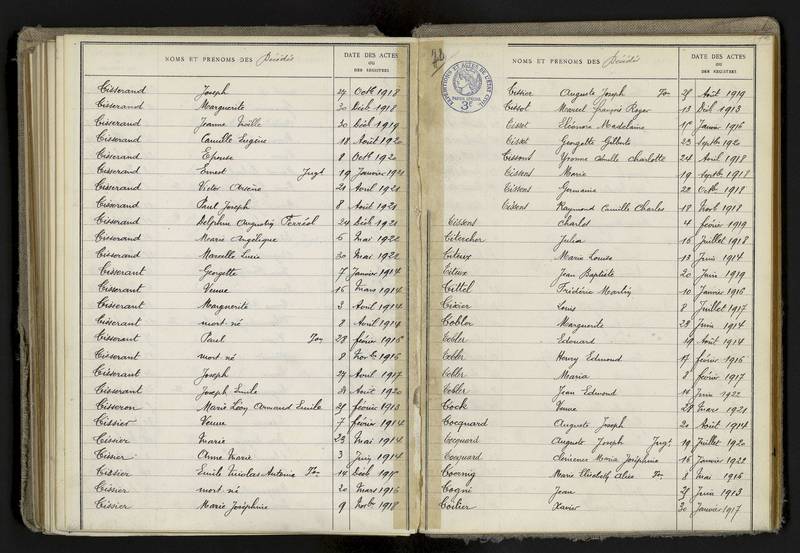 NOMS ET PRENOMS DES Décédés
DATE DES ACTES
OU
DES REGISTRES
Tisserand Joseph 27 Octb 1918
Tisserand Marguerite 30 Déch 1918
Tisserand Jeanne Noëlle 30 Déch 1919
Tisserand Camille Eugène 18 Août 1920
Tisserand Epouse 8 Octb 1920
Tisserand Ernest Jugt 19 Janvier 1921
Tisserand Victor Arsène 21 Avril 1921
Tisserand Paul Joseph 8 Août 1921
Tisserand Delphin Augustin Ferréol 24 Déch 1921
Tisserand Marie Angélique 6 Mai 1922
Tisserand Marcelle Lucie 30 Mai 1922
Tisserant Georgette 7 Janvier 1914
Tisserant Veuve 16 Mars 1914
Tisserant Marguerite 3 Avril 1914
Tisserant mort-né 8 Avril 1914
Tisserant Paul Ton 28 février 1916
Tisserant mort né 8 Novb 1916
Tisserant Joseph 27 Avril 1917
Tisserant Joseph Emile Août 1920
Tisseron Marie Léon Armand Emile 25 février 1913
Tissier Veuve 7 février 1914
Tissier Marie 23 Mai 1914
Tissier Anne Marie 3 Juin 1914
Tissier Emile Nicolas Antoine Ton 14 Déch
Tissier mort né 20 Mars 1916
Tissier Marie Joséphine 9 Novb 1918
72
EXPEDITIONS ET ACTES DE L'ETAT CIVIL
3F
NOMS ET PRENOMS DES Décédés
DATE DES ACTES
OU
DES REGISTRES
Tissier Auguste Joseph Ton 25 Août 1919
Tissot Marcel François Roger 13 Déch 1913
Tissot Eléonore Madeleine Janvier 1916
Tissot Georgette Gilberte 23 Septb 1920
Tissont Yvonne Charlotte 24 Avril 1918
Tissont Marie 19 Septb 1918
Tissont Germaine 22 Octb 1918
Tissont Raymond Camille Charles 18 Novb 1918
Tissont Charles 4 février 1919
Titercher Julia 16 Juillet 1918
Titeux Marie Louise 13 Juin 1914
Titeux Jean Baptiste 20 Juin 1919
Tittel Frédéric Martin 10 Janvier 1916
Tixier Louis 8 Juillet 1917
Tobler Marguerite 28 Juin 1914
Tobler Edouard 19 Août 1914
Tobler Henry Edmond 17 février 1916
Tobler Maria 8 février 1917
Tobler Jean Edmond 14 Juin 1922
Tock Veuve 28 Mars 1921
Tocquard Auguste Joseph 20 Août 1914
Tocquard Auguste Joseph Jugt 19 Juillet 1920
Tocquard Clémence Maria Joséphine 16 Janvier 1922
Marie Elisabeth Alice Ton 8 Mai 1916
Togni Jean 25 Juin 1913
Toitier Xavier 30 Janvier 1917